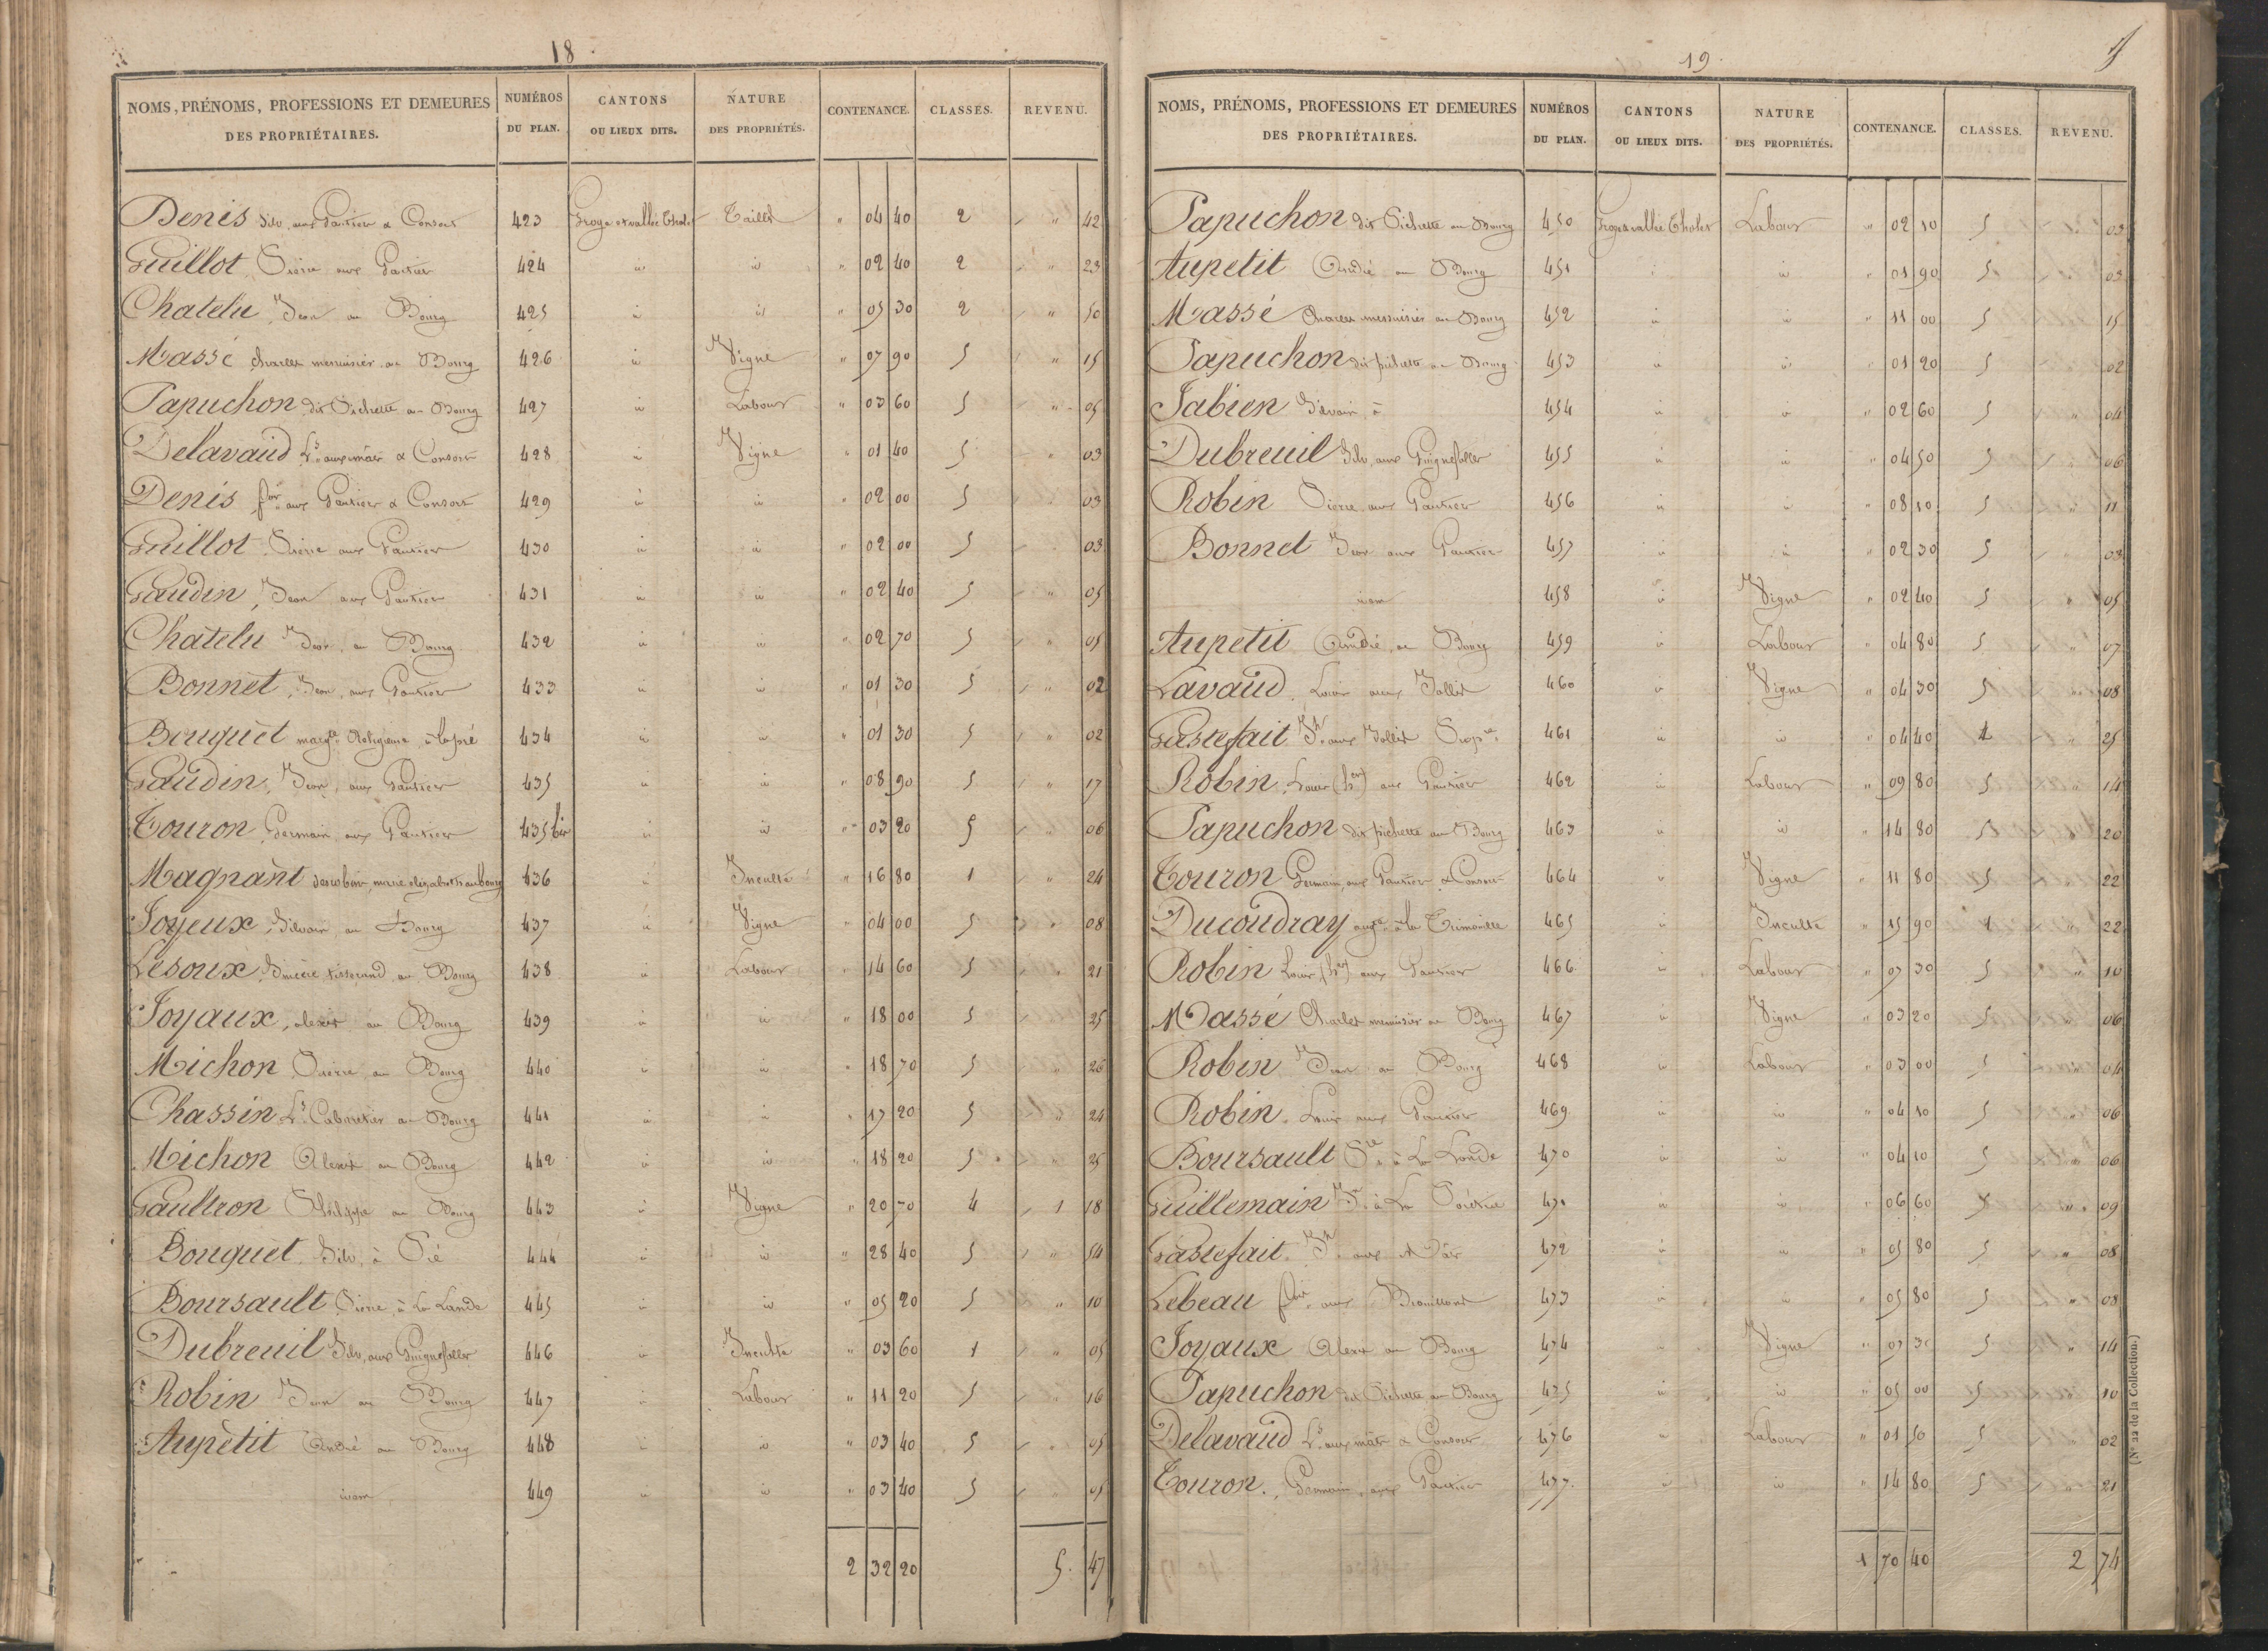 18
NOMS, PRÉNOMS, PROFESSIONS ET DEMEURES DES PROPRIÉTAIRES. NUMÉROS DU PLAN. CANTONS OU LIEUX DITS. NATURE DES PROPRIÉTÉS. CONTENANCE. CLASSES. REVENU.
Denis Silv. aux Gautier & Consort 423 Taillis " 04 40 2 " 42
Guillot Pierre aux Gautier 424 id id " 02 40 2 " 23
Chatelu Jean au Bourg 425 id id " 05 30 2 " 50
Massé Charles menuisier au Bourg 426 id Vigne " 07 90 5 " 15
Papuchon dit Pichette au Bourg 427 id Labour " 03 60 5 " 05
Delavaud Ls. & Consort 428 id Vigne " 01 40 5 " 03
Denis aux Gautier & Consort 429 id id " 02 00 5 03
Guillot Pierre aux Gautier 430 id id " 02 00 5 03
Gaudin, Jean aux Gautier 431 id id " 02 40 5 " 05
Chatelu Jean, au Bourg 432 id id " 02 70 5 " 05
Bonnet, Jean, aux Gautier 433 id id " 01 30 5 " 02
Bouquet Religieuse 434 id id " 01 30 5 " 02
Gaudin, Jean, aux Gautier 435 id id " 08 90 5 " 17
Touron Germain, aux Gautier 435 bis id id " 03 20 5 " 06
Magnant 436 id Inculte " 16 80 1 " 24
Joyeux, Silvain, au Bourg 437 id Vigne " 04 00 5 " 08
Lesoux, tisserand au Bourg 438 id Labour " 14 60 5 " 21
Joyaux, alexis au Bourg 439 id id " 18 00 5 25
Michon Pierre au Bourg 440 id id " 18 70 5 " 26
Chassin Ls. Cabaretier au Bourg 441 id id " 17 20 5 " 24
Michon Alexis au Bourg 442 id id " 18 20 5 " 25
Gaultron Philippe au Bourg 443 id Vigne " 20 70 4 1 18
Bouquet Silv. à 444 id id " 28 40 5 " 54
Boursault Pierre, à La Lande 445 id id " 05 20 5 " 10
Dubreuil Silv. aux 446 id Inculte " 03 60 1 " 05
Robin Jean au Bourg 447 id Labour " 11 20 5 " 16
Aupetit André au Bourg 448 id id " 03 40 5 " 05
idem 449 id id " 03 40 5 " 05
2 32 20 5. 47
19
NOMS, PRÉNOMS, PROFESSIONS ET DEMEURES DES PROPRIÉTAIRES. NUMÉROS DU PLAN. CANTONS OU LIEUX DITS. NATURE DES PROPRIÉTÉS. CONTENANCE. CLASSES. REVENU.
Papuchon dit Pichette au Bourg 450 Labour " 02 10 5 03
Aupetit André au Bourg 451 id " 01 90 5 03
Massé Charles menuisier au Bourg 452 id id " 11 00 5 15
Papuchon dit pichette au Bourg 453 id id " 01 20 5 02
Fabien Silvain à 454 id id " 02 60 5 " 04
Dubreuil Silv. aux 455 id id " 04 50 5 " 06
Robin Pierre aux Gautier 456 id id " 08 10 5 " 11
Bonnet Jean aux Gautier 457 id id " 02 30 5 03
idem 458 id Vigne " 02 40 5 " 05
Aupetit André, au Bourg 459 id Labour " 04 80 5 " 07
Lavaud, Louis aux 460 id Vigne " 04 30 5 " 08
Gastefait Jh. aux 461 id id " 04 40 " 25
Robin, Louis aux Gautier 462 id Labour " 09 80 5 " 14
Papuchon dit pichette au Bourg 463 id id " 14 80 5 20
Touron Germain, aux Gautier & Consort 464 id Vigne " 11 80 5 22
Ducoudray à la Trimouille 465 id Inculte " 15 90 1 " 22
Robin Louis aux Gautier 466 id Labour " 07 30 5 " 10
Massé Charles menuisier au Bourg 467 id Vigne " 03 20 5 " 06
Robin Jean au Bourg 468 id Labour " 03 00 5 04
Robin, Louis aux Gautier 469 id id " 04 10 5 " 06
Boursault Pre. à La Lande 470 id id " 04 10 5 06
Guillemain à La 471 id id " 06 60 5 " 09
Gastefait Jh. aux 472 id id " 05 80 5 " 08
Lebeau aux 473 id id " 05 80 5 08
Joyaux Alexis au Bourg 474 Vigne " 07 30 5 " 14
Papuchon dit Pichette au Bourg 475 id id " 05 00 5 10
Delavaud Ls. & Consort 476 id Labour " 01 50 5 " 02
Touron, Germain, aux Gautier 477 id id " 14 80 5 21
1 70 40 2 74
(N° 22 de la Collection.)